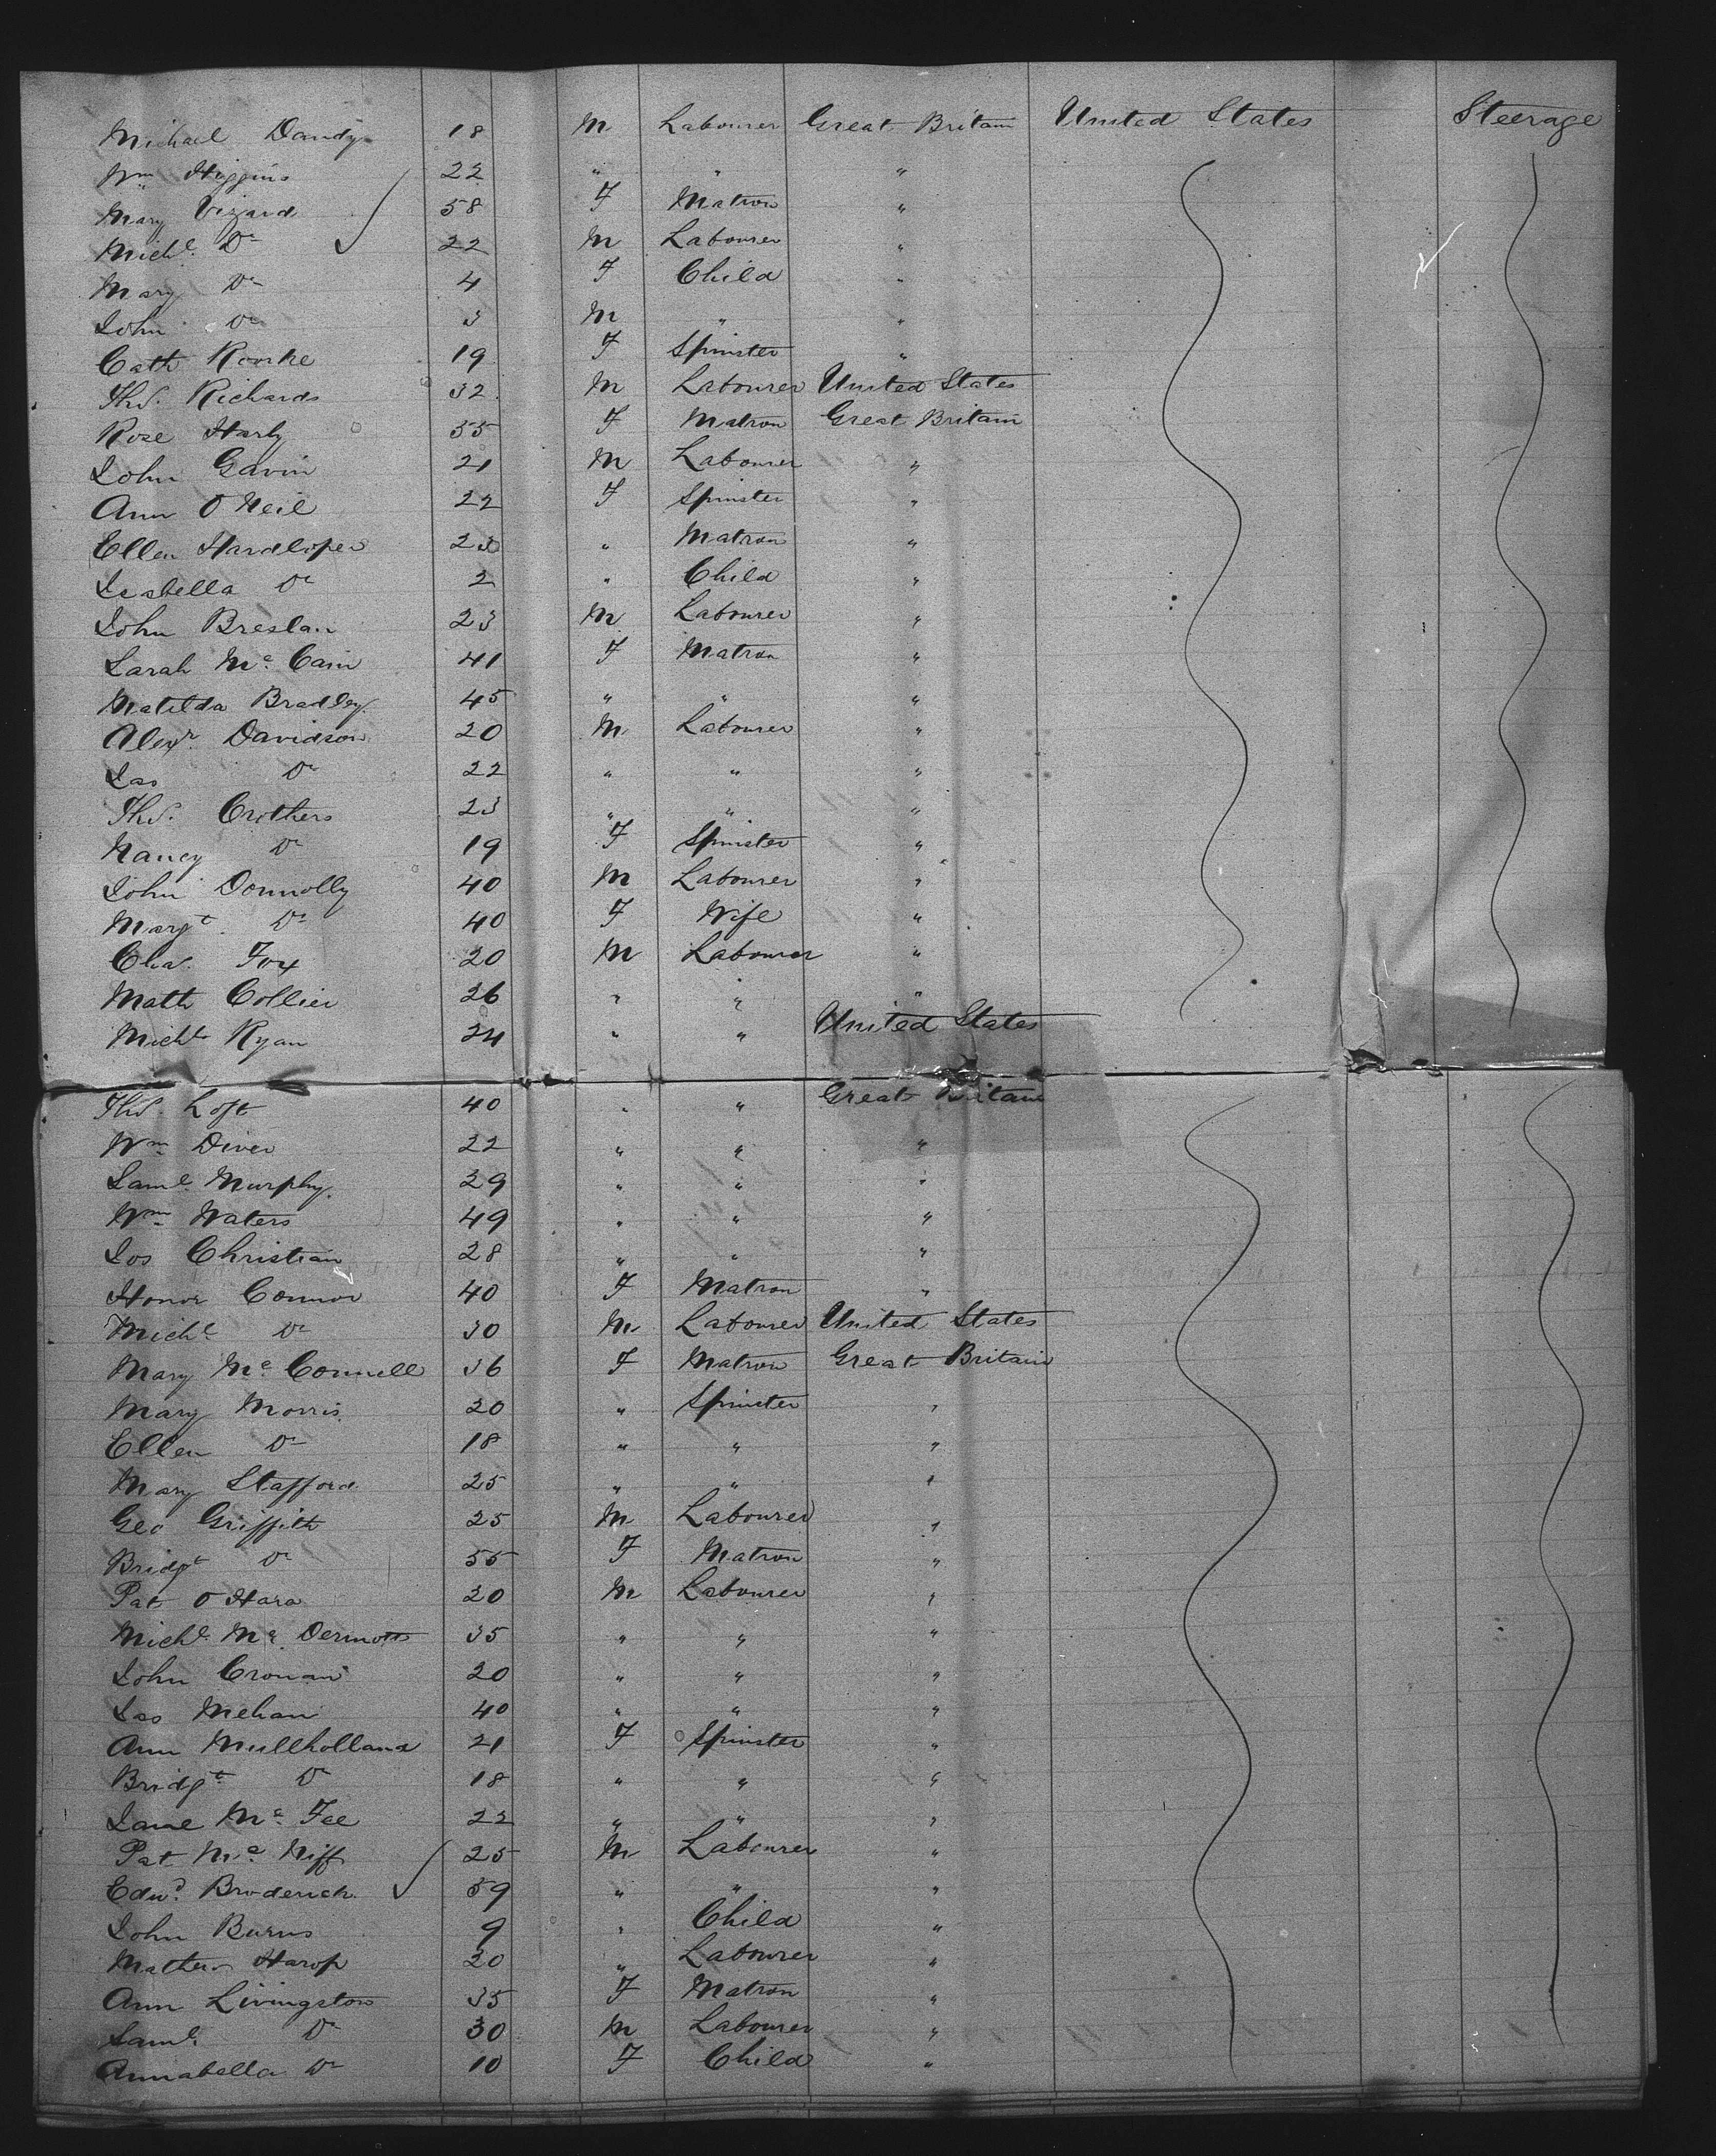 Michael Dandy 18 M Labourer Great Britain United States Steerage
Wm Higgins 22 " " "
Mary Vizard 58 F Matron "
Michl Do 22 M Labourer "
Mary Do 4 F Child "
John Do 3 M " "
Cath Rourke 19 F Spinster "
Thos. Richards 32 M Labourer United States
Rose Harly 55 F Matron Great Britain
John Gavin 21 M Labourer "
Ann O Neil 22 F Spinster "
Ellen Hardloper 23 " Matron "
Isabella Do 2 " Child "
John Breslan 23 M Labourer "
Sarah Mc Cain 41 F Matron "
Matilda Bradley 45 " " "
Alexr. Davidson 20 M Labourer "
Jas Do 22 " " "
Thos. Crothers 23 " " "
Nancy Do 19 F Spinster "
John Donnolly 40 M Labourer "
Margt. Do 40 F Wife "
Chas. Fox 20 M Labourer "
Math Collier 26 " " "
Michl Ryan 24 " " United States
Thos. Loft 40 " " Great Britain
Wm Diver 22 " " "
Saml. Murphy 29 " " "
Wm Waters 49 " " "
Jos Christian 28 " " "
Honor Connor 40 F Matron "
Michl Do 30 M Labourer United States
Mary Mc Connell 36 F Matron Great Britain
Mary Morris 20 " Spinster "
Ellen Do 18 " " "
Mary Stafford 25 " " "
Geo Griffith 25 M Labourer "
Bridgt Do 55 F Matron "
Pat O Hara 20 M Labourer "
Michl Mc Dermott 35 " " "
John Cronan 20 " " "
Jas Mehan 40 " " "
Ann Mullholland 21 F Spinster "
Bridgt Do 18 " " "
Jane Mc Fee 22 " " "
Pat Mc Niff 25 M Labourer "
Edwd Broderick 59 " " "
John Burns 9 " Child "
Mathew Harop 20 " Labourer "
Ann Livingston 35 F Matron "
Saml. Do 30 M Labourer "
Annabella Do 10 F Child "